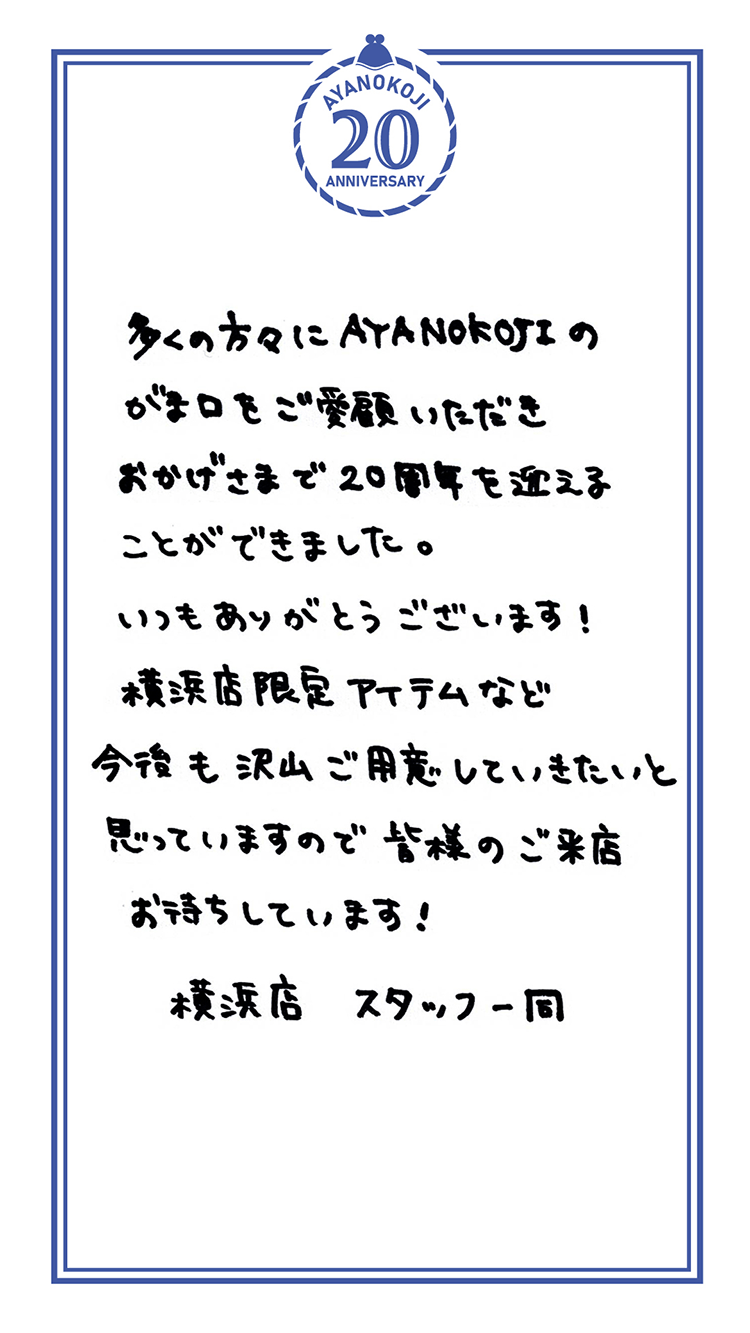 AYANOKOJI
20
ANNIVERSARY
多くの方々にAYANOKOJIの
がま口をご愛顧いただき
おかげさまで20周年を迎える
ことができました。
いつもありがとうございます!
横浜店限定アイテムなど
今後も沢山ご用意していきたいと
思っていますので皆様のご来店
お待ちしています!
横浜店 スタッフ一同